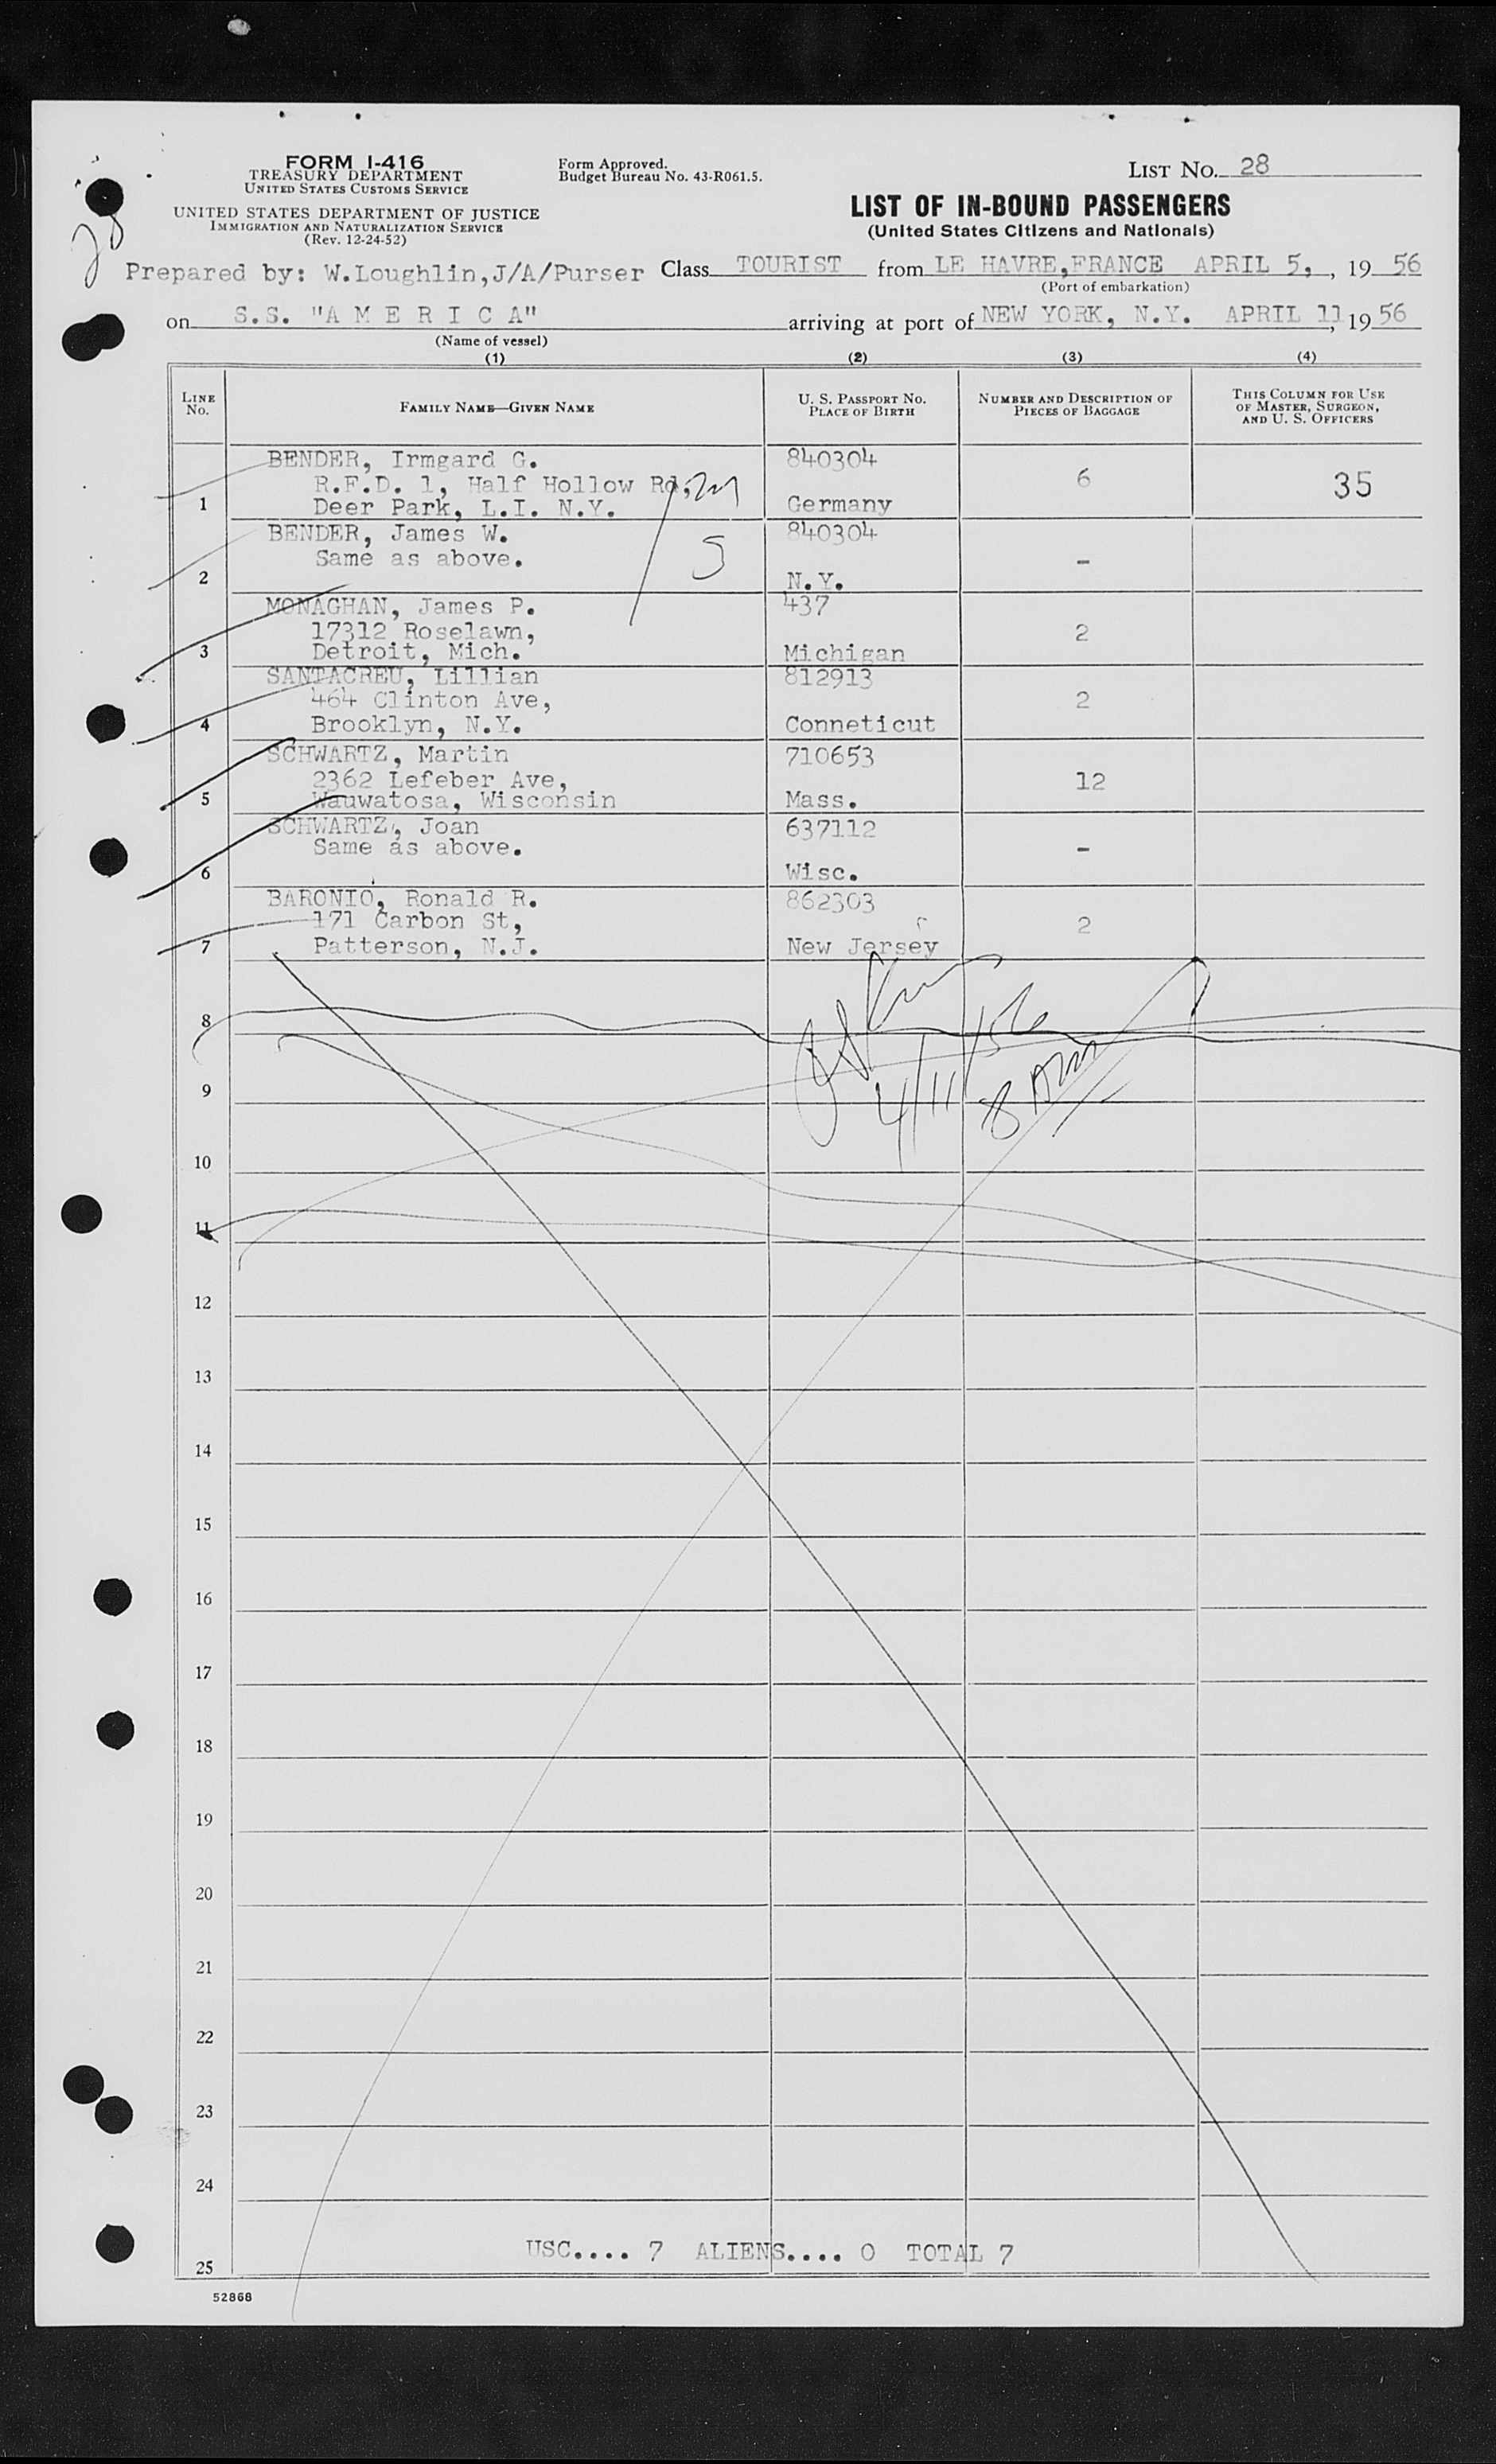 FORM I-416
TREASURY DEPARTMENT
UNITED STATES CUSTOMS SERVICE
UNITED STATES DEPARTMENT OF JUSTICE
IMMIGRATION AND NATURALIZATION SERVICE
(Rev. 12-24-52)
Form Approved.
Budget Bureau No. 43-R061.5.
LIST No. 28
LIST OF IN-BOUND PASSENGERS
(United States Citizens and Nationals)
28
Prepared by: W.Loughlin,J/A/Purser Class TOURIST from LE HAVRE,FRANCE APRIL 5, , 19 56
(Port of embarkation)
on S.S. "A M E R I C A" arriving at port of NEW YORK, N.Y. APRIL 11, 19 56
(Name of vessel)
(1) (2) (3) (4)
LINE No. FAMILY NAME—GIVEN NAME U. S. PASSPORT NO. PLACE OF BIRTH NUMBER AND DESCRIPTION OF PIECES OF BAGGAGE THIS COLUMN FOR USE OF MASTER, SURGEON, AND U. S. OFFICERS
BENDER, Irmgard G. 840304
R.F.D. 1, Half Hollow Rd, 6 35
1 Deer Park, L.I. N.Y. Germany
BENDER, James W. 840304
Same as above. S -
2 N.Y.
MONAGHAN, James P. 437
17312 Roselawn, 2
3 Detroit, Mich. Michigan
SANTACREU, Lillian 812913
464 Clinton Ave, 2
4 Brooklyn, N.Y. Conneticut
SCHWARTZ, Martin 710653
2362 Lefeber Ave, 12
5 Wauwatosa, Wisconsin Mass.
SCHWARTZ, Joan 637112
Same as above. -
6 Wisc.
BARONIO, Ronald R. 862303
171 Carbon St, 2
7 Patterson, N.J. New Jersey
8
4/11/56
9 8 AM
10
11
12
13
14
15
16
17
18
19
20
21
22
23
24
USC.... 7 ALIENS.... 0 TOTAL 7
25
52868